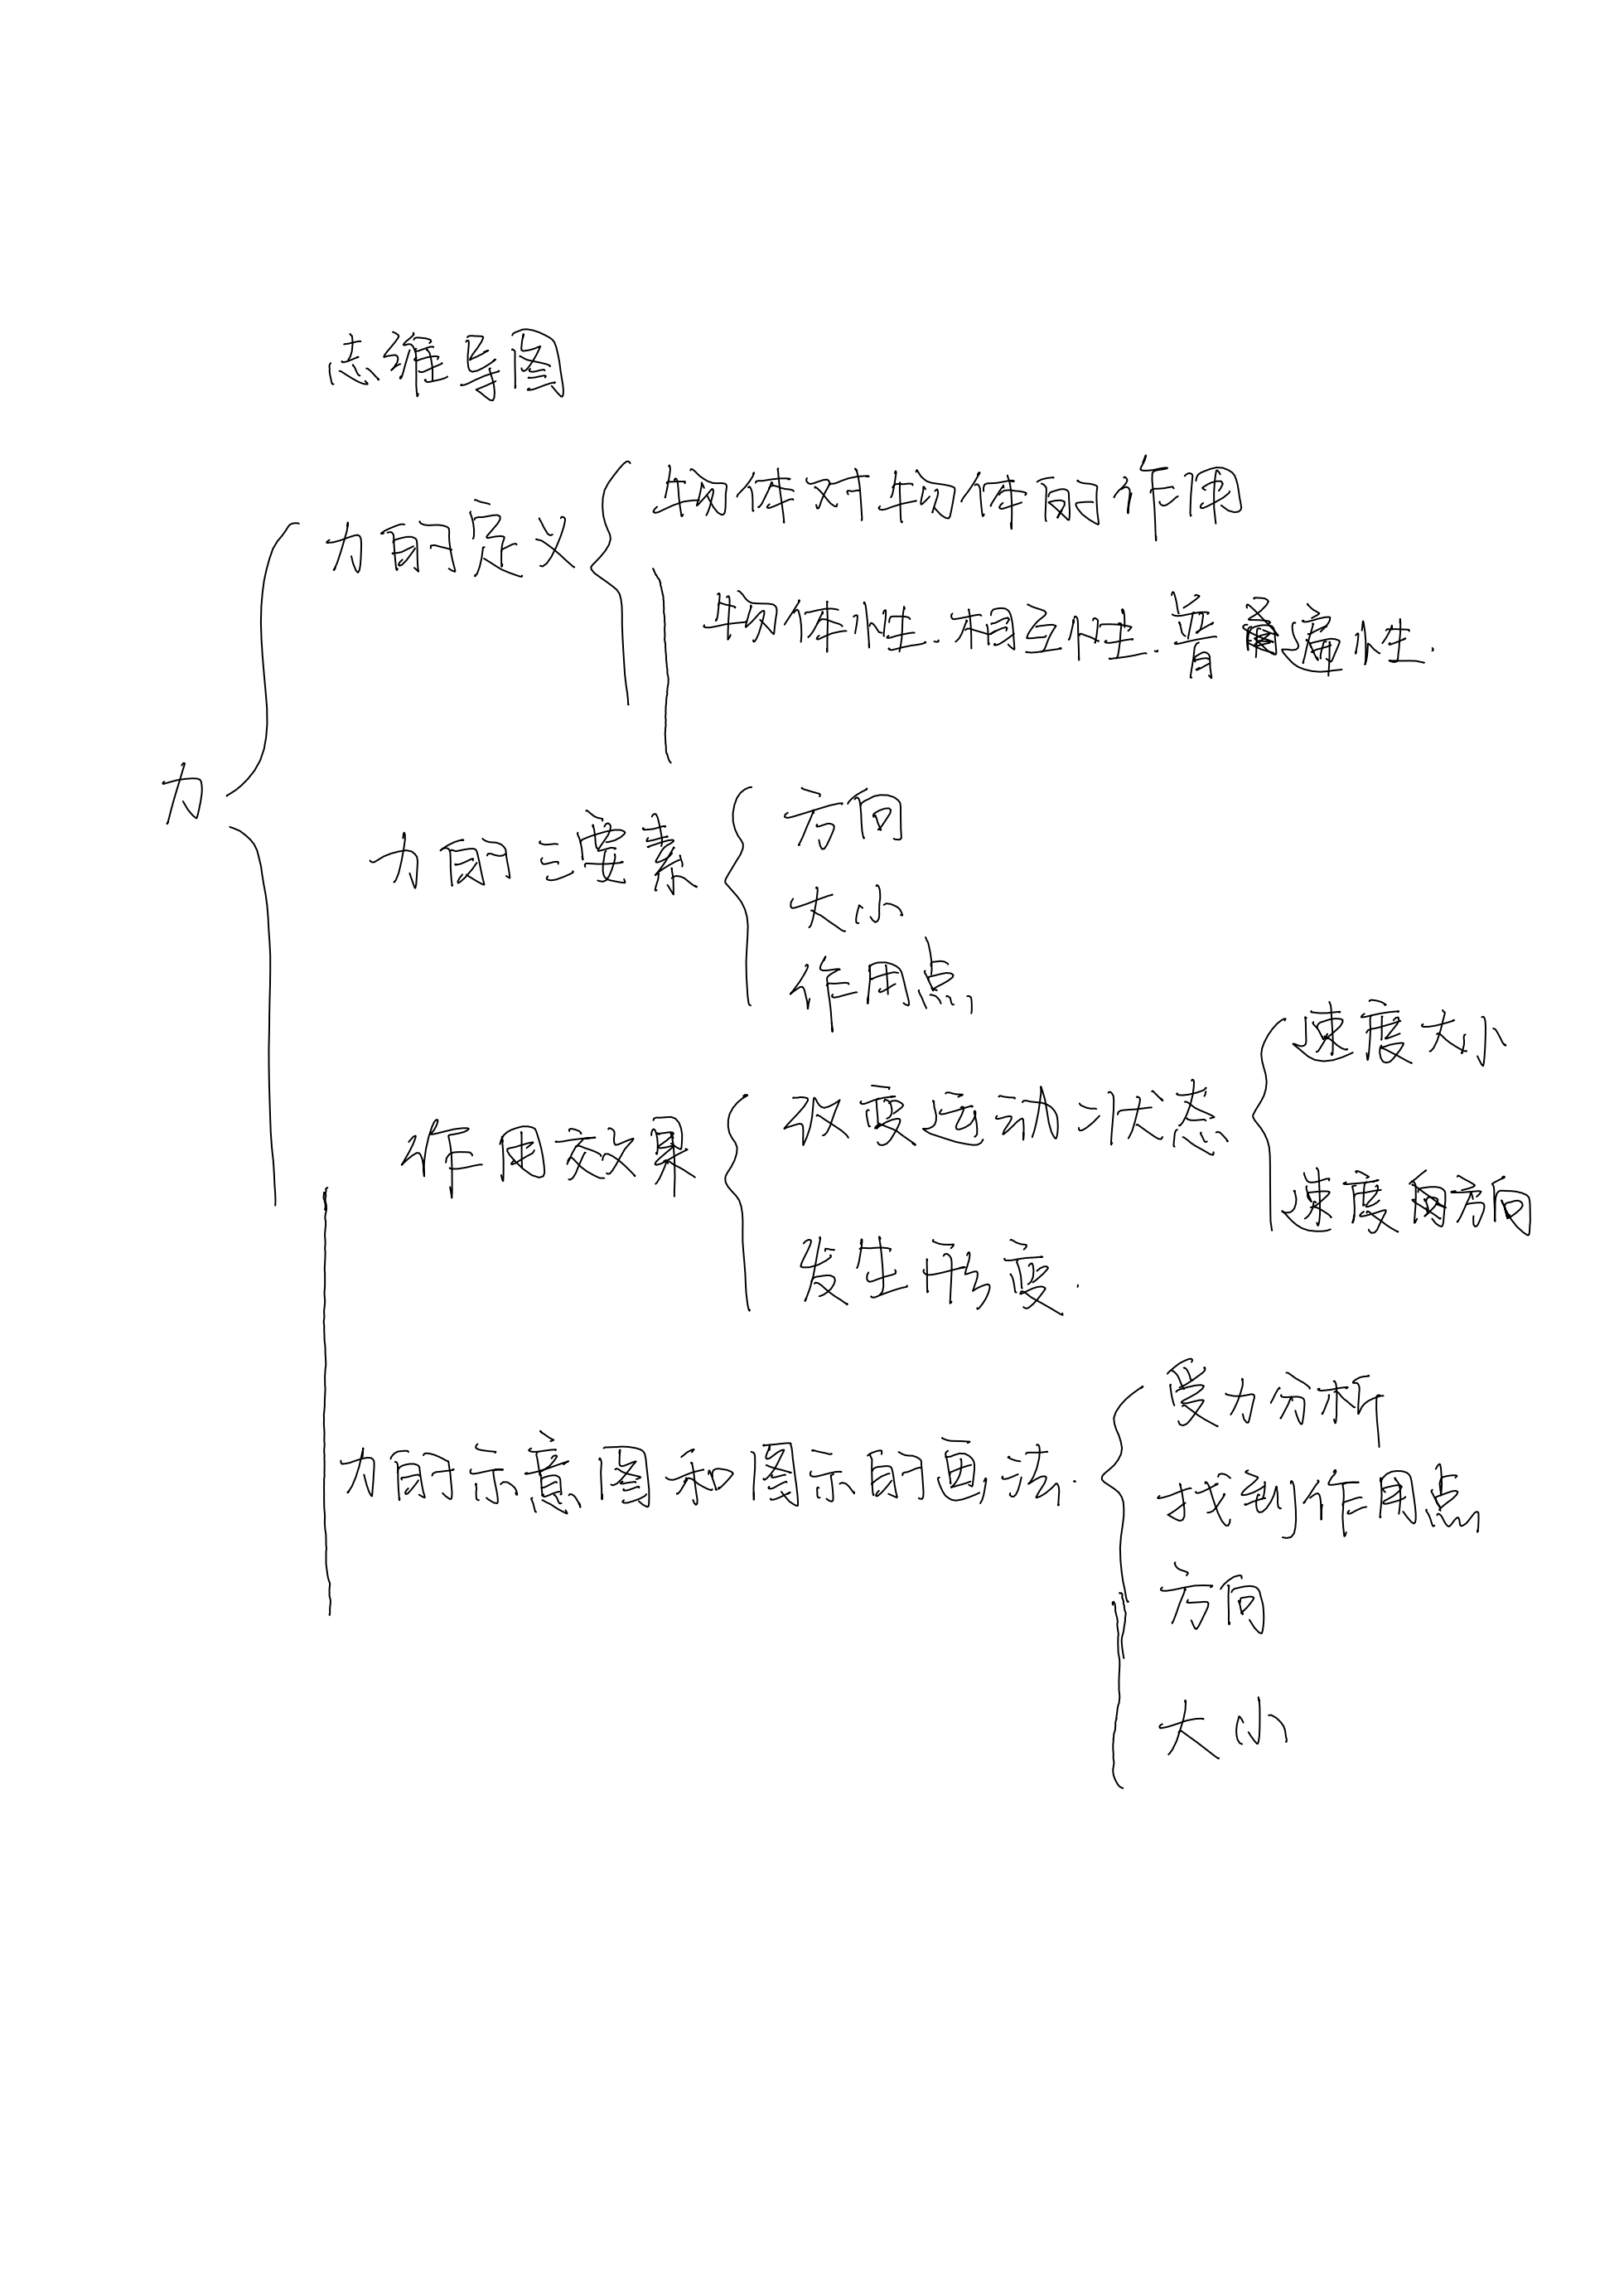 志维导图
力的定义
物体对物体的作用
物体性.相互性.普遍性.
力
力的三要素
方向
大小
作用点
作用效果
改变运动状态
速度大小
速度方向
发生形变.
力的示意图和图示的画法.
受力分析
找到作用点
方向
大小